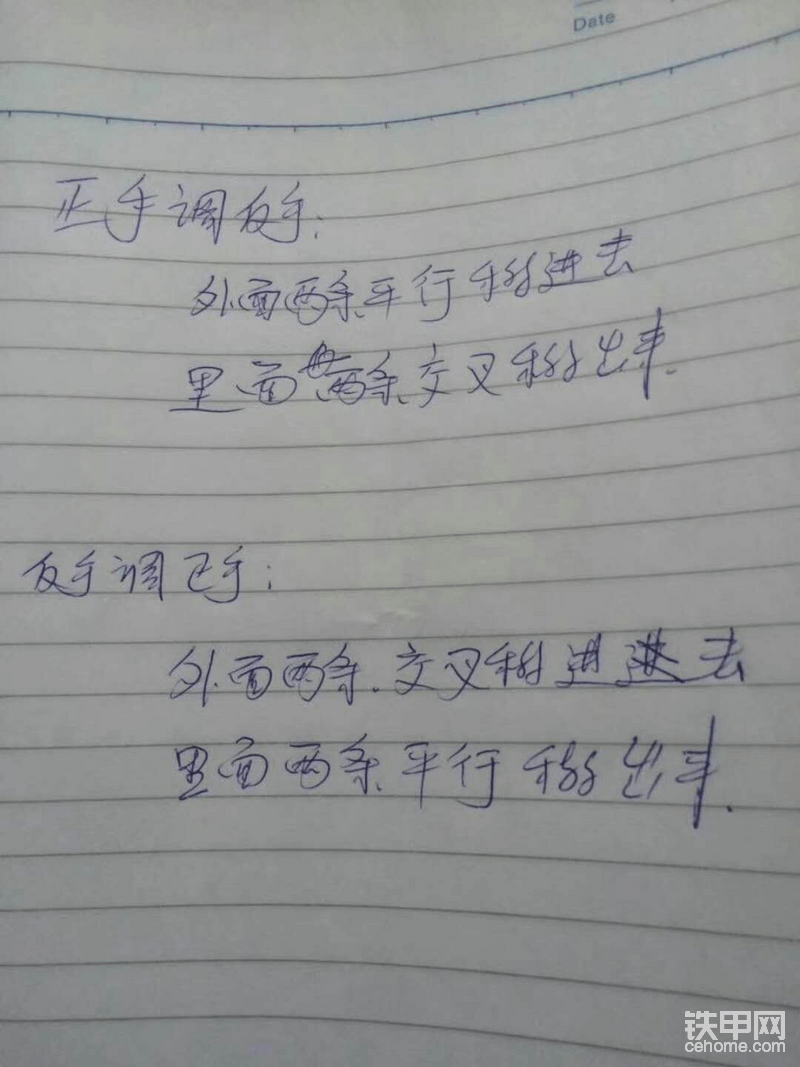 Date
正手调反手:
外面两条平行移进去
里面两条交叉移出来.
反手调正手:
外面两条.交叉移进进去
里面两条平行移出来.
铁甲网
cehome.com